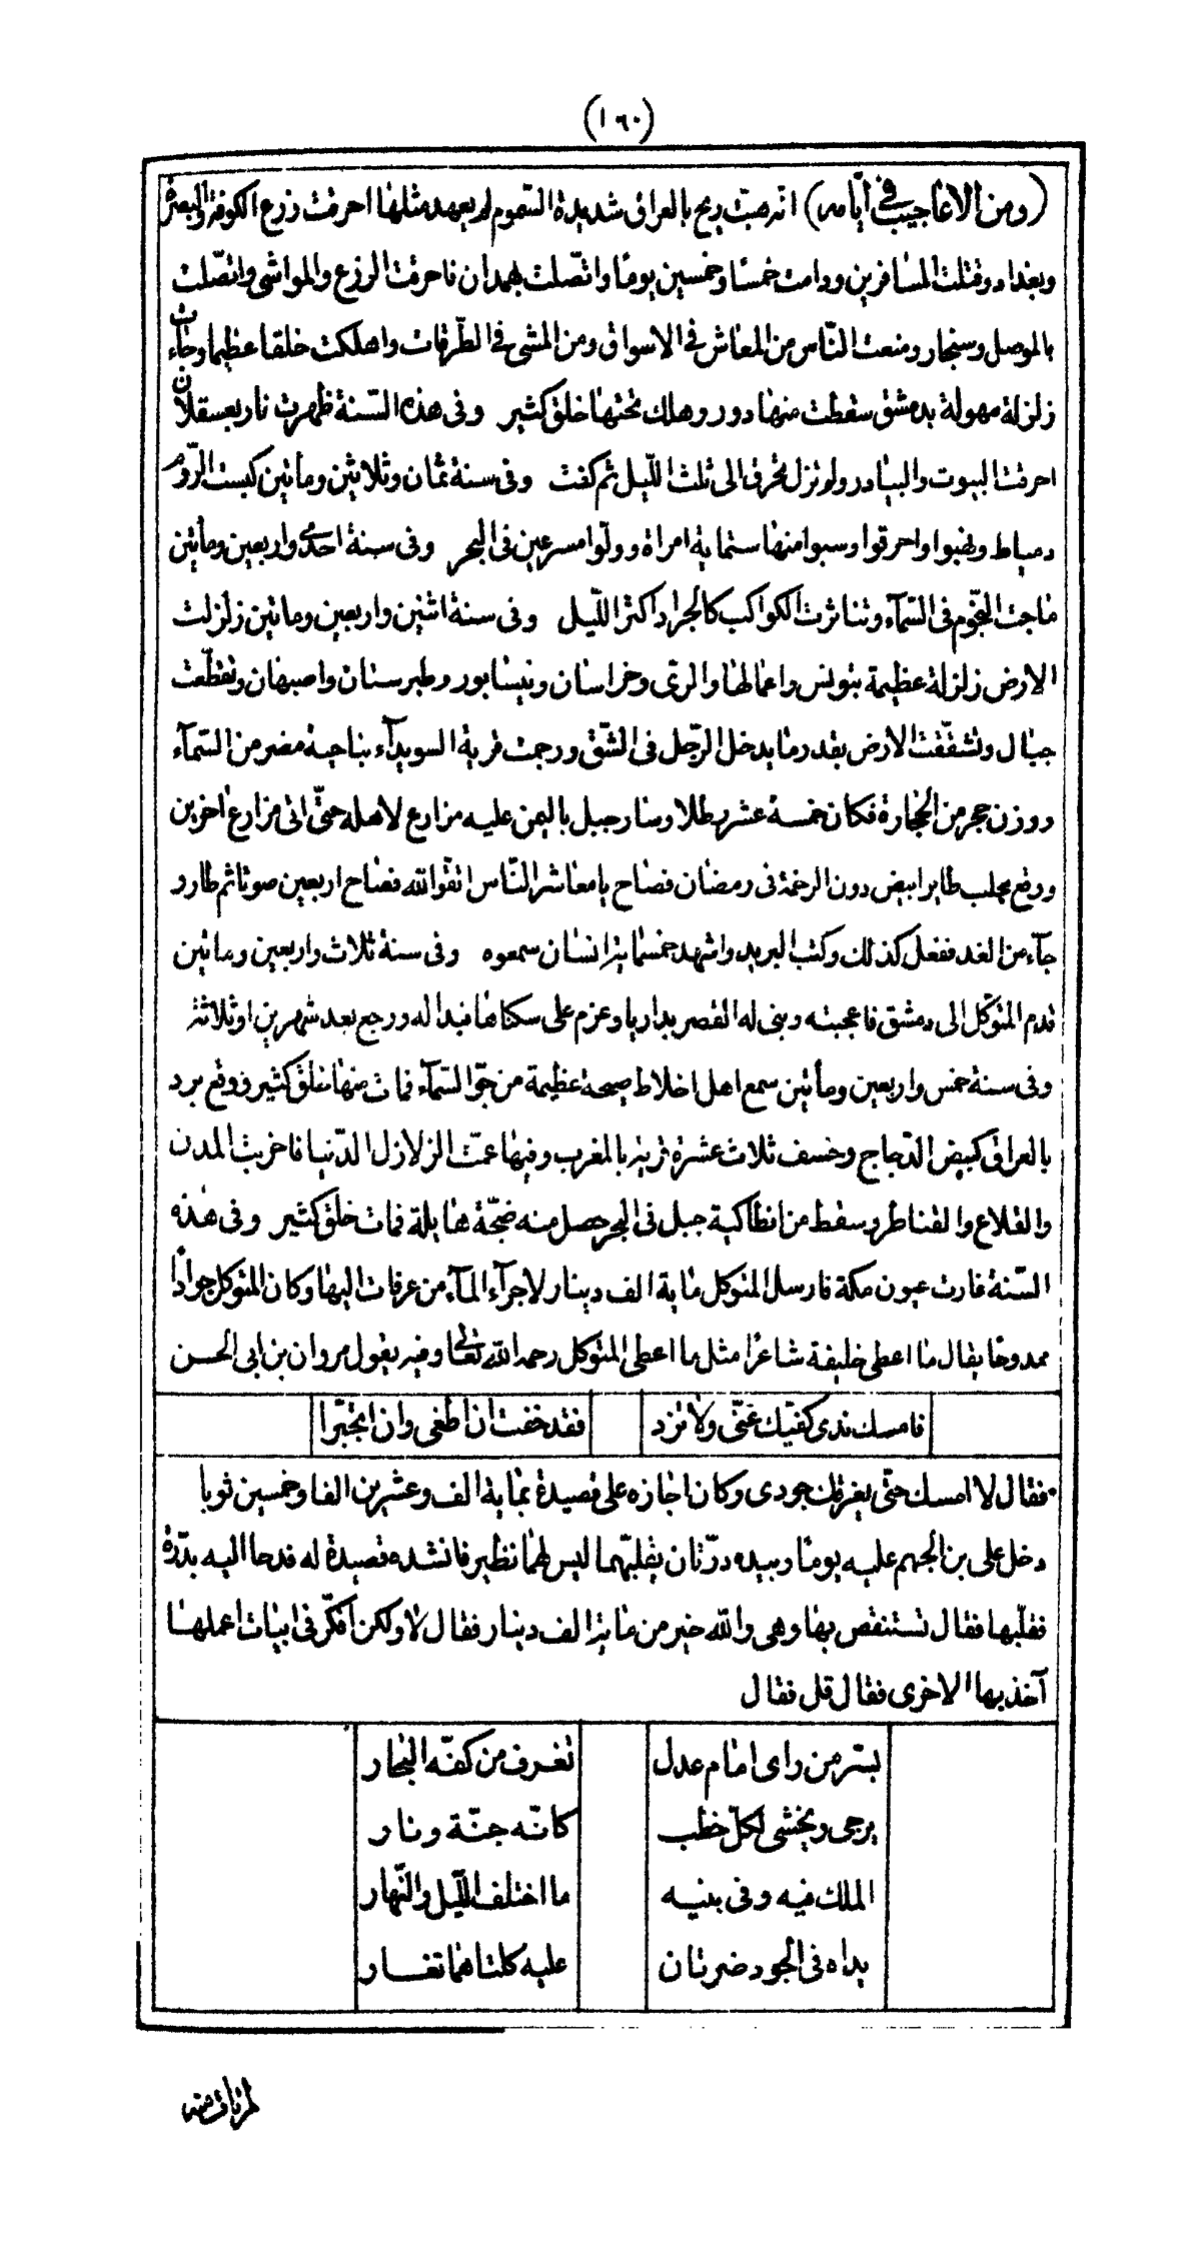 (١٦٠)
(ومن الاعاجيب في أيامه) انه هبت ريح بالعراق شديدة السّموم لم يعهد مثلها احرقت زرع الكوفة والبصرة
وبغداد وقتلت المسافرين ودامت خمسا وخمسين يوما واتّصلت بهمدان فاحرقت الزرع والمواشي واتّصلت
بالموصل وسنجار ومنعت النّاس من المعاش في الاسواق ومن المشي في الطّرقات واهلكت خلقا عظيما وجاءت
زلزلة مهولة بدمشق سقطت منها دور وهلك تحتها خلق كثير وفي هذه السّنة ظهرت نار بعسقلان
احرقت البيوت والبيادر ولم تزل تحرق الى ثلث اللّيل ثم كفت وفي سنة ثمان وثلاثين ومأتين كبست الرّوم
دمياط ونهبوا واحرقوا وسبوا منها ستماية امراة وولّوا مسرعين في البحر وفي سنة احدى واربعين ومأتين
ماجت النجّوم في السّمآء وتناثرت الكواكب كالجراد اكثر اللّيل وفي سنة اثنين واربعين وماتين زلزلت
الارض زلزلة عظيمة بتونس واعمالها والريّ وخراسان ونيسابور وطبرستان واصبهان وتقطّعت
جبال وتشقّقت الارض بقدر ما يدخل الرّجل في الشّق ورجمت قرية السويدآء بناحية مضر من السّمآء
ووزن حجر من الحجارة فكان خمسة عشر رطلا وسار جبل باليمن عليه مزارع لاهله حتّى اتى مزارع اخرين
ووقع بحلب طاير ابيض دون الرخمة في رمضان فصاح يا معاشر النّاس اتقوا الله فصاح اربعين صوتا ثم طار و
جآء من الغد ففعل كذلك وكتب البريد واشهد خمسماية انسان سمعوه وفي سنة ثلاث واربعين وماتين
قدم المتوكّل الى دمشق فاعجبته وبنى له القصر بداريا وعزم على سكناها فبدا له ورجع بعد شهرين او ثلاثة
وفي سنة خمس واربعين ومأتين سمع اهل اخلاط صيحة عظيمة من جوّ السّمآء فمات منها خلق كثير ووقع برد
بالعراق كبيض الدّجاج وخسف ثلاث عشرة قرية بالمغرب وفيها عمّت الزلازل الدّنيا فاخربت المدن
والقلاع والقناطر وسقط من انطاكية جبل في البحر حصل منه ضجّة هايلة فمات خلق كثير وفي هذه
السّنة غارت عيون مكة فارسل المتوكل ماية الف دينار لاجرآء المآء من عرفات اليها وكان المتوكل جوادا
ممدوحا يقال ما اعطى خليفة شاعرا مثل ما اعطى المتوكل رحمه الله تعالى وفيه يقول مروان بن ابي الحسن
فامسك ندى كفّيك عنّى ولا تزد فقد خفت ان اطغى وان اتجبّرا
فقال لا امسك حتّى يغرقك جودى وكان اجازه على قصيدة بماية الف وعشرين الفا وخمسين ثوبا
دخل على بن الجهم عليه يوما وبيده درّتان يقلبّهما ليس لهما نظير فانشده قصيدة له فدحا اليه بدّرة
فقلّبها فقال تستنقص بها وهي والله خير من ماية الف دينار فقال لا ولكن افكّر في ابيات اعملها
آخذ بها الاخرى فقال قل فقال
بسّر من راى امام عدل تغرف من كفّه البحار
يرجى ويخشى لكلّ خطب كانّه جنّة ونار
الملك فيه وفي بنيه ما اختلف اللّيل والنّهار
يداه في الجود ضرتان عليه كلتاهما تغار